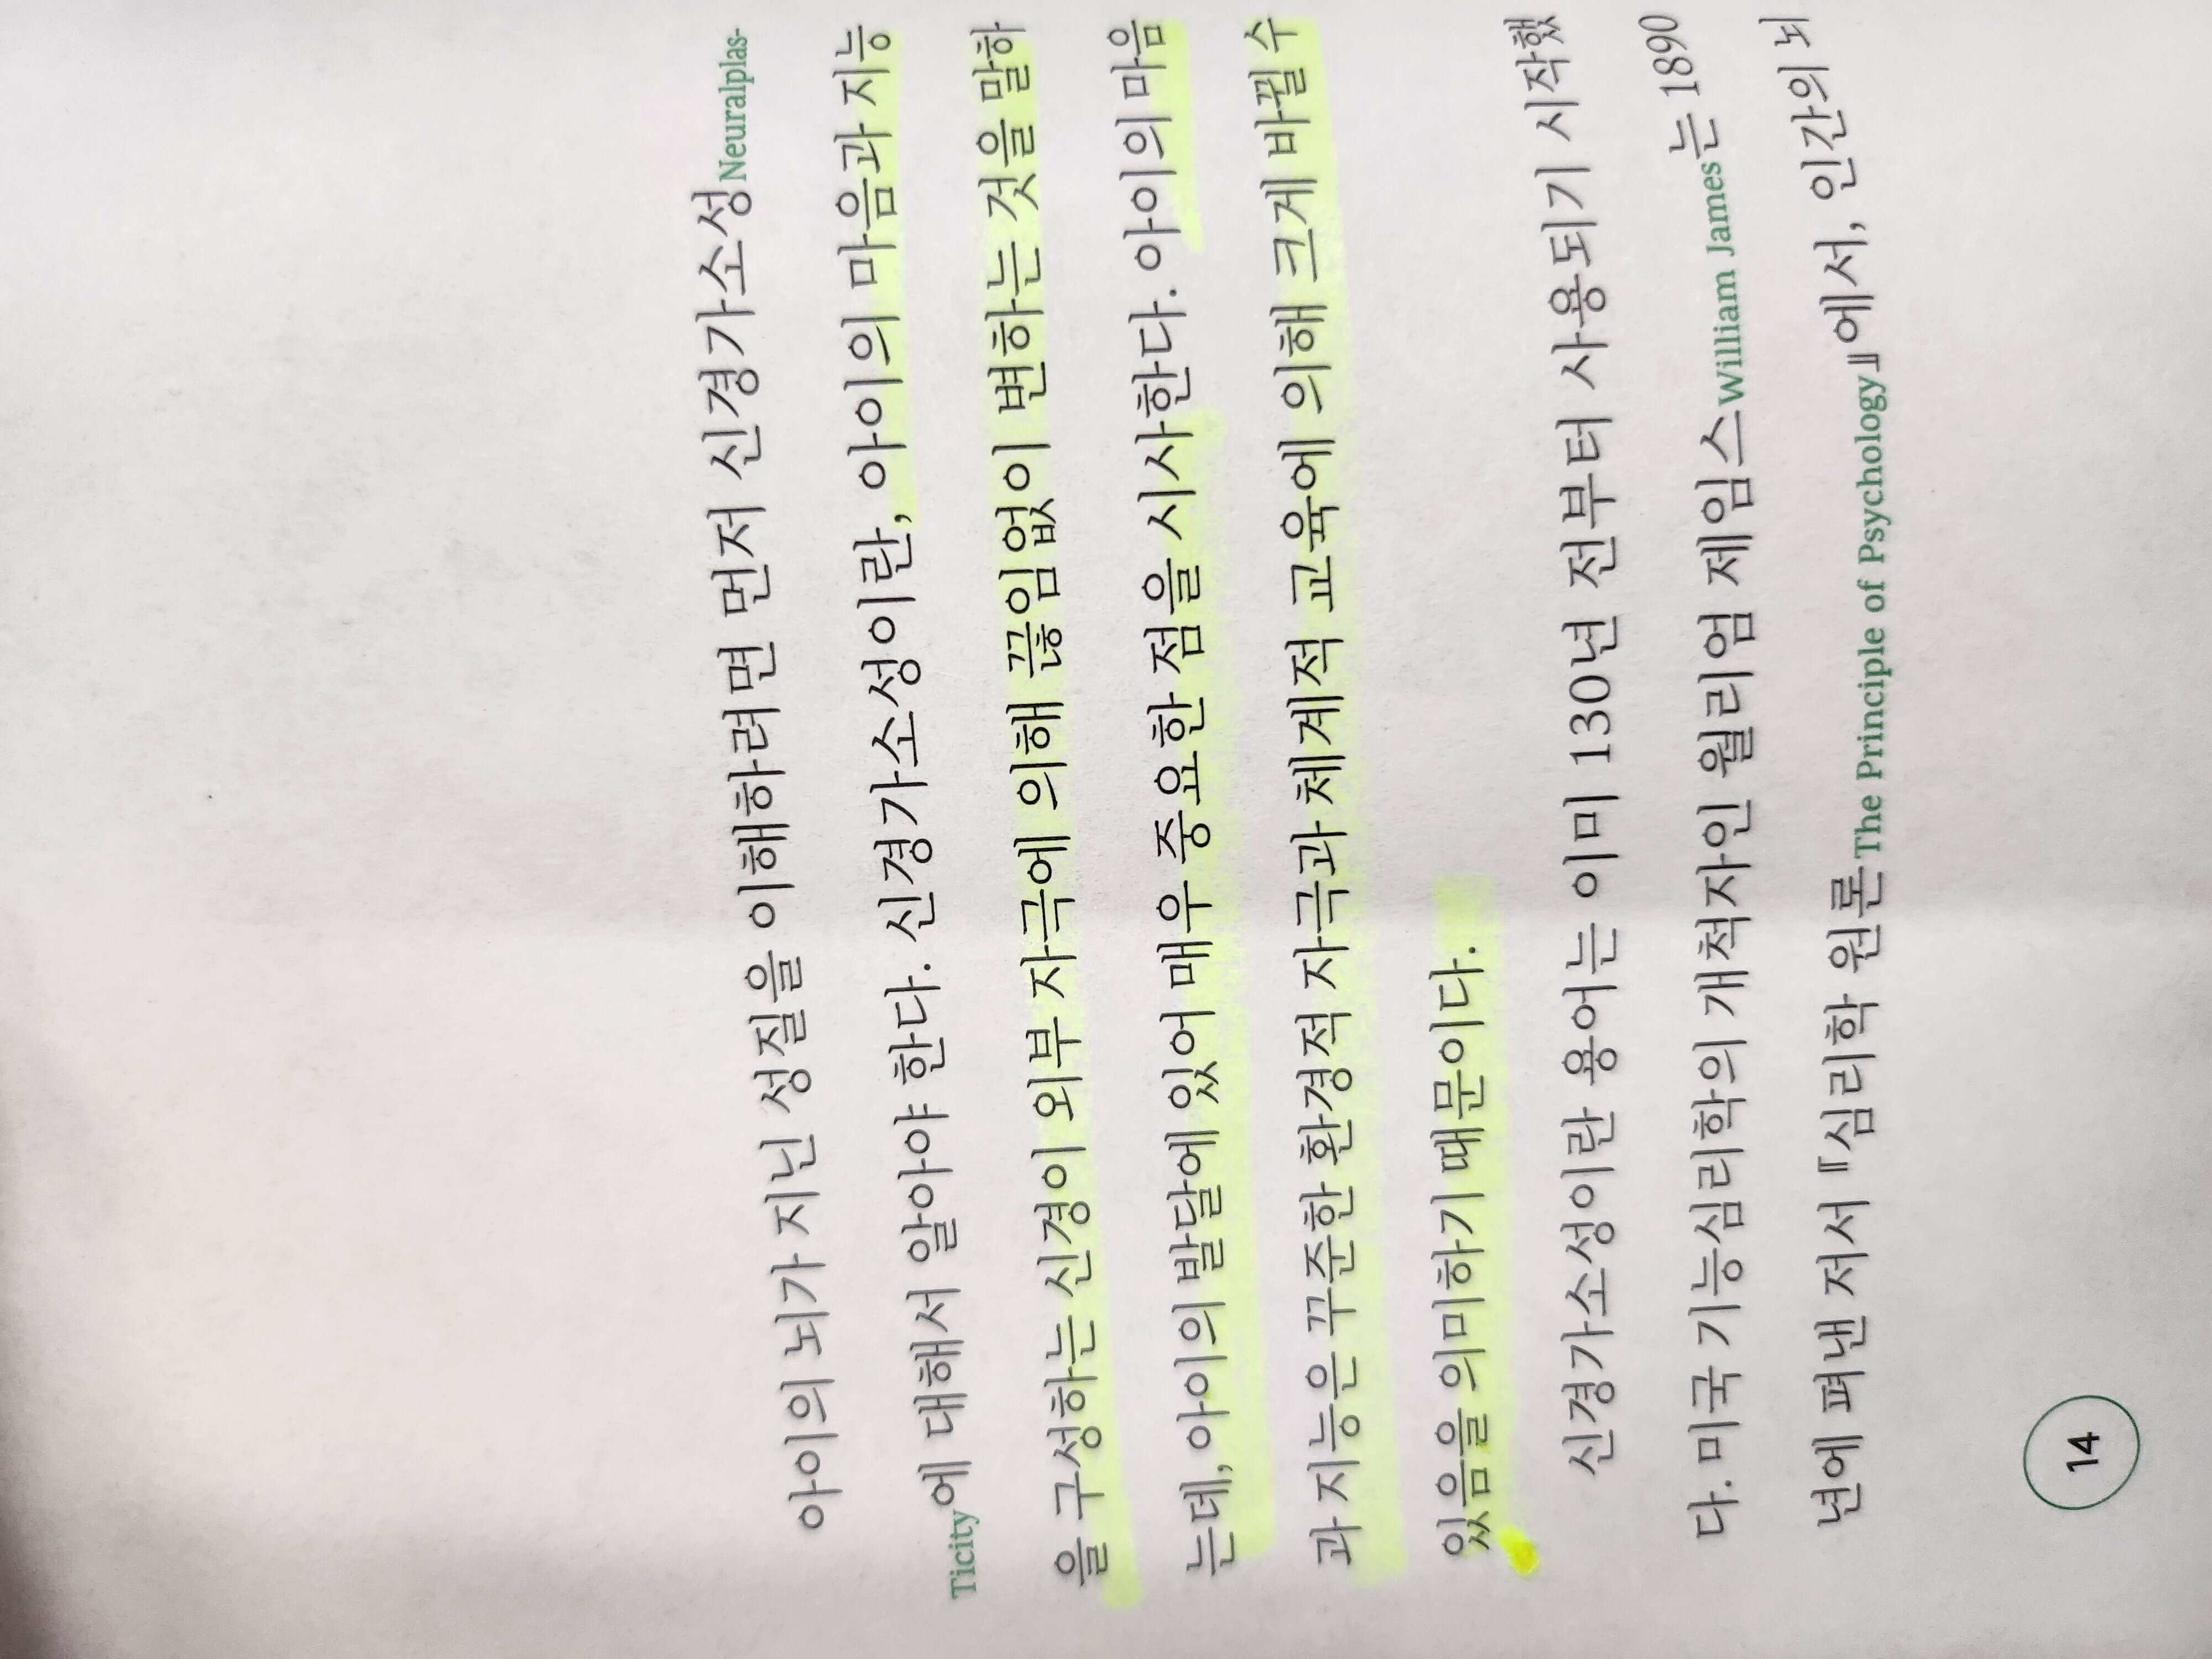 아이의 뇌가 지닌 성질을 이해하려면 먼저 신경가소성Neuralplas-
Ticity에 대해서 알아야 한다. 신경가소성이란, 아이의 마음과 지능
을 구성하는 신경이 외부 자극에 의해 끊임없이 변하는 것을 말하
는데, 아이의 발달에 있어 매우 중요한 점을 시사한다. 아이의 마음
과 지능은 꾸준한 환경적 자극과 체계적 교육에 의해 크게 바뀔 수
있음을 의미하기 때문이다.
신경가소성이란 용어는 이미 130년 전부터 사용되기 시작했
다. 미국 기능심리학의 개척자인 윌리엄 제임스William James는 1890
년에 펴낸 저서 『심리학 원론The Principle of Psychology』에서, 인간의 뇌
14